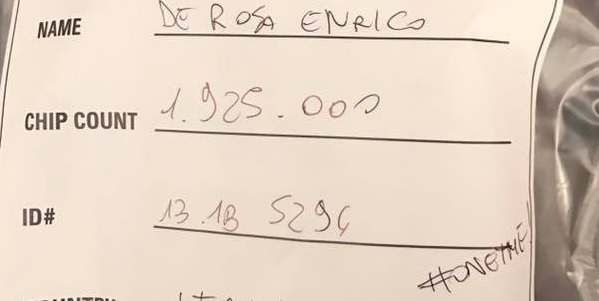 NAME DE ROSA ENRICO
CHIP COUNT 1.925.000
ID# 13.1B 529G
#ONETIME!